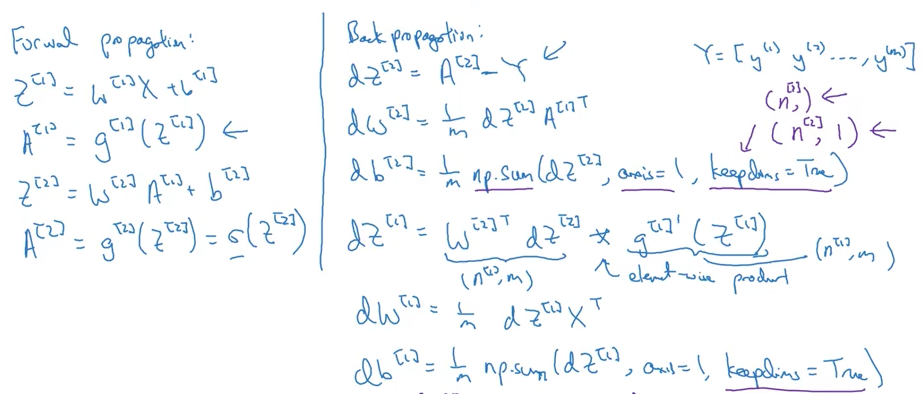 Forwal propagation:
Z^[1] = W^[1] X + b^[1]
A^[1] = g^[1](Z^[1]) ←
Z^[2] = W^[2] A^[1] + b^[2]
A^[2] = g^[2](Z^[2]) = σ(Z^[2])
Back propagation:
dZ^[2] = A^[2] - Y
dW^[2] = 1/m dZ^[2] A^[1]T
db^[2] = 1/m np.sum(dZ^[2], axis=1, keepdims=True)
dZ^[1] = W^[2]T dZ^[2] * g^[1]'(Z^[1])
(n^[1], m) element-wise product (n^[1], m)
dW^[1] = 1/m dZ^[1] X^T
db^[1] = 1/m np.sum(dZ^[1], axis=1, keepdims=True)
Y = [y^(1) y^(2) ..., y^(m)]
(n^[2],) ←
(n^[2], 1) ←